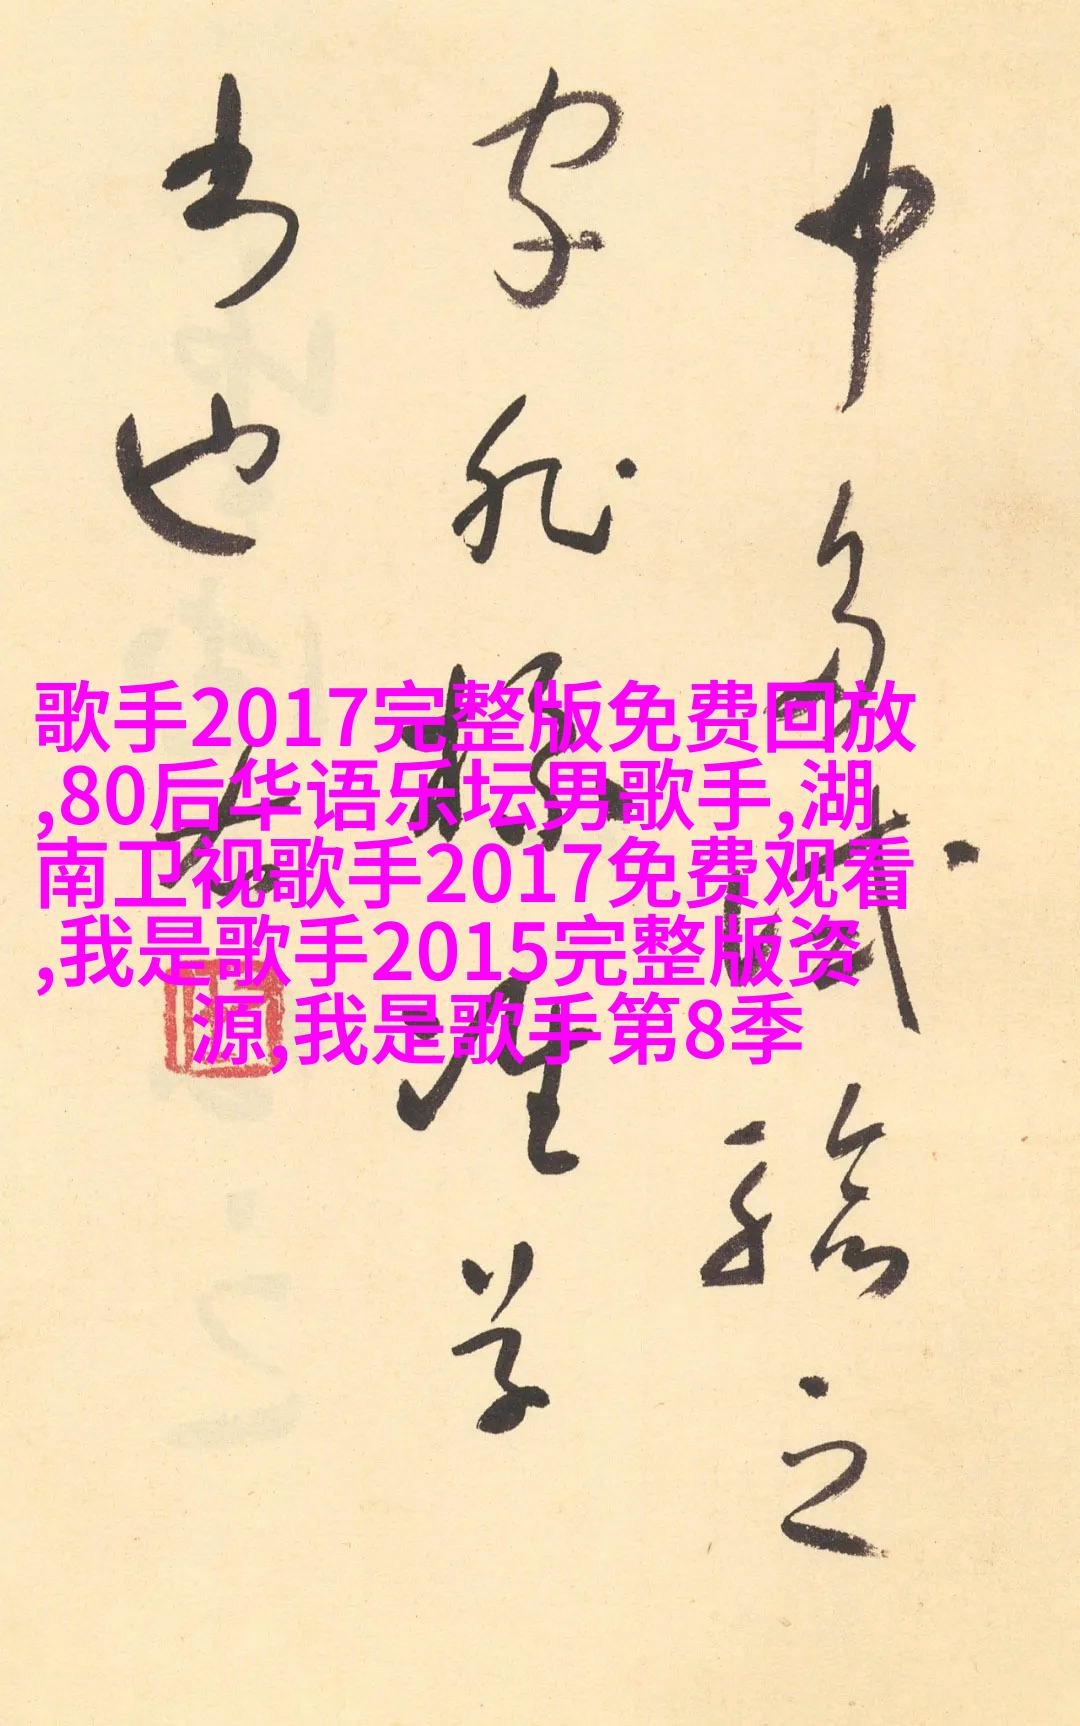 中多武
驗之
字非標准草
书也
歌手2017完整版免费回放
,80后华语乐坛男歌手,湖
南卫视歌手2017免费观看
,我是歌手2015完整版资
源,我是歌手第8季